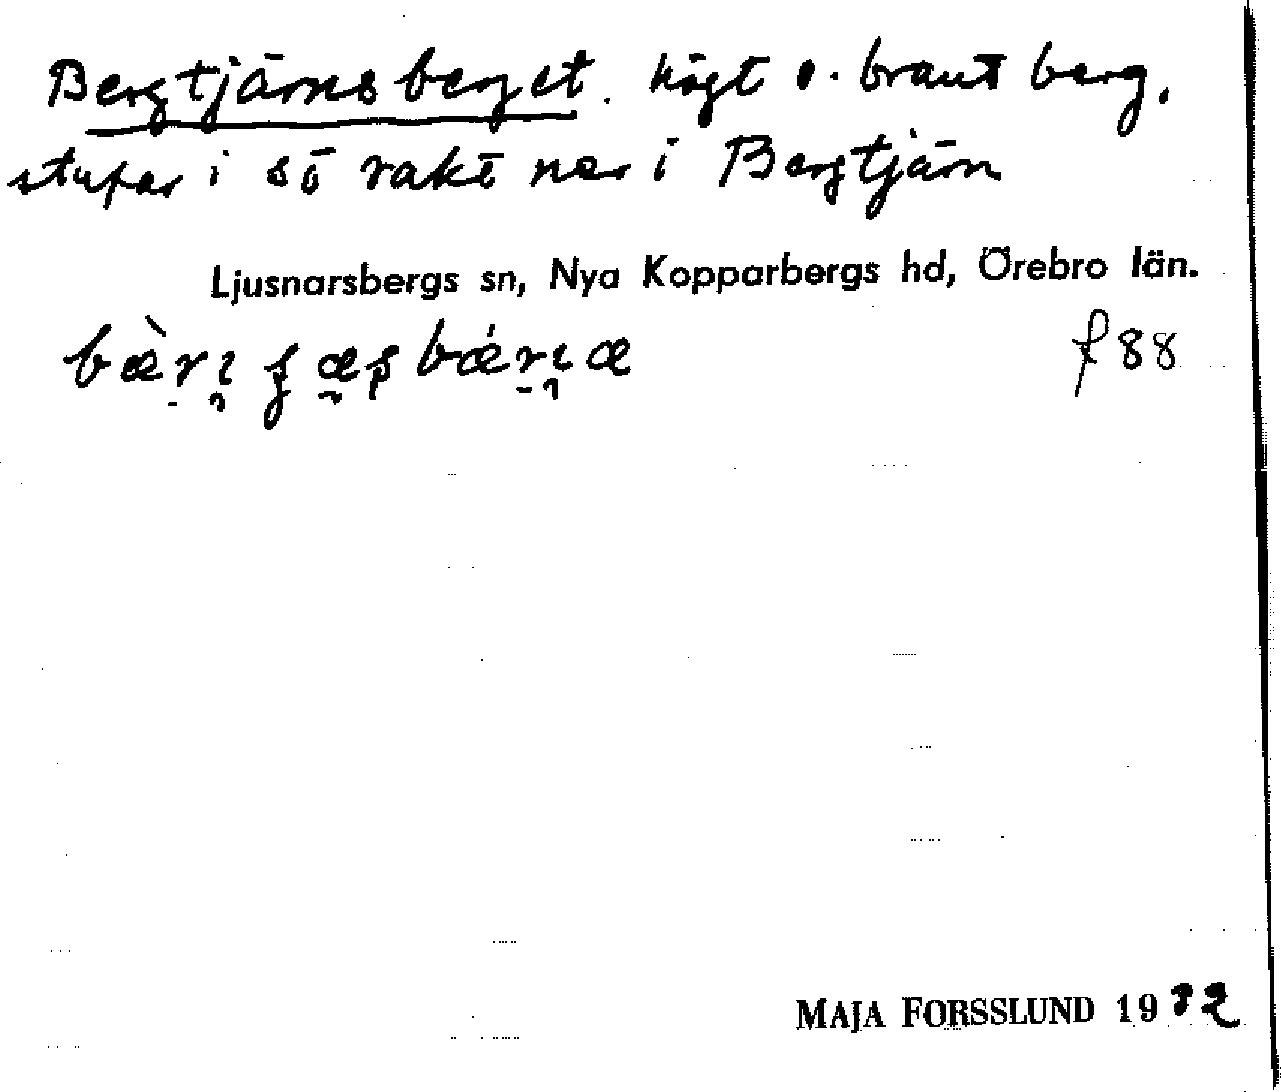 Bergtjärnsberget. högt o. brant berg,
stupar i sö rakt ner i Bergtjärn
Ljusnarsbergs sn, Nya Kopparbergs hd, Örebro län.
f 88
MAJA FORSSLUND 19